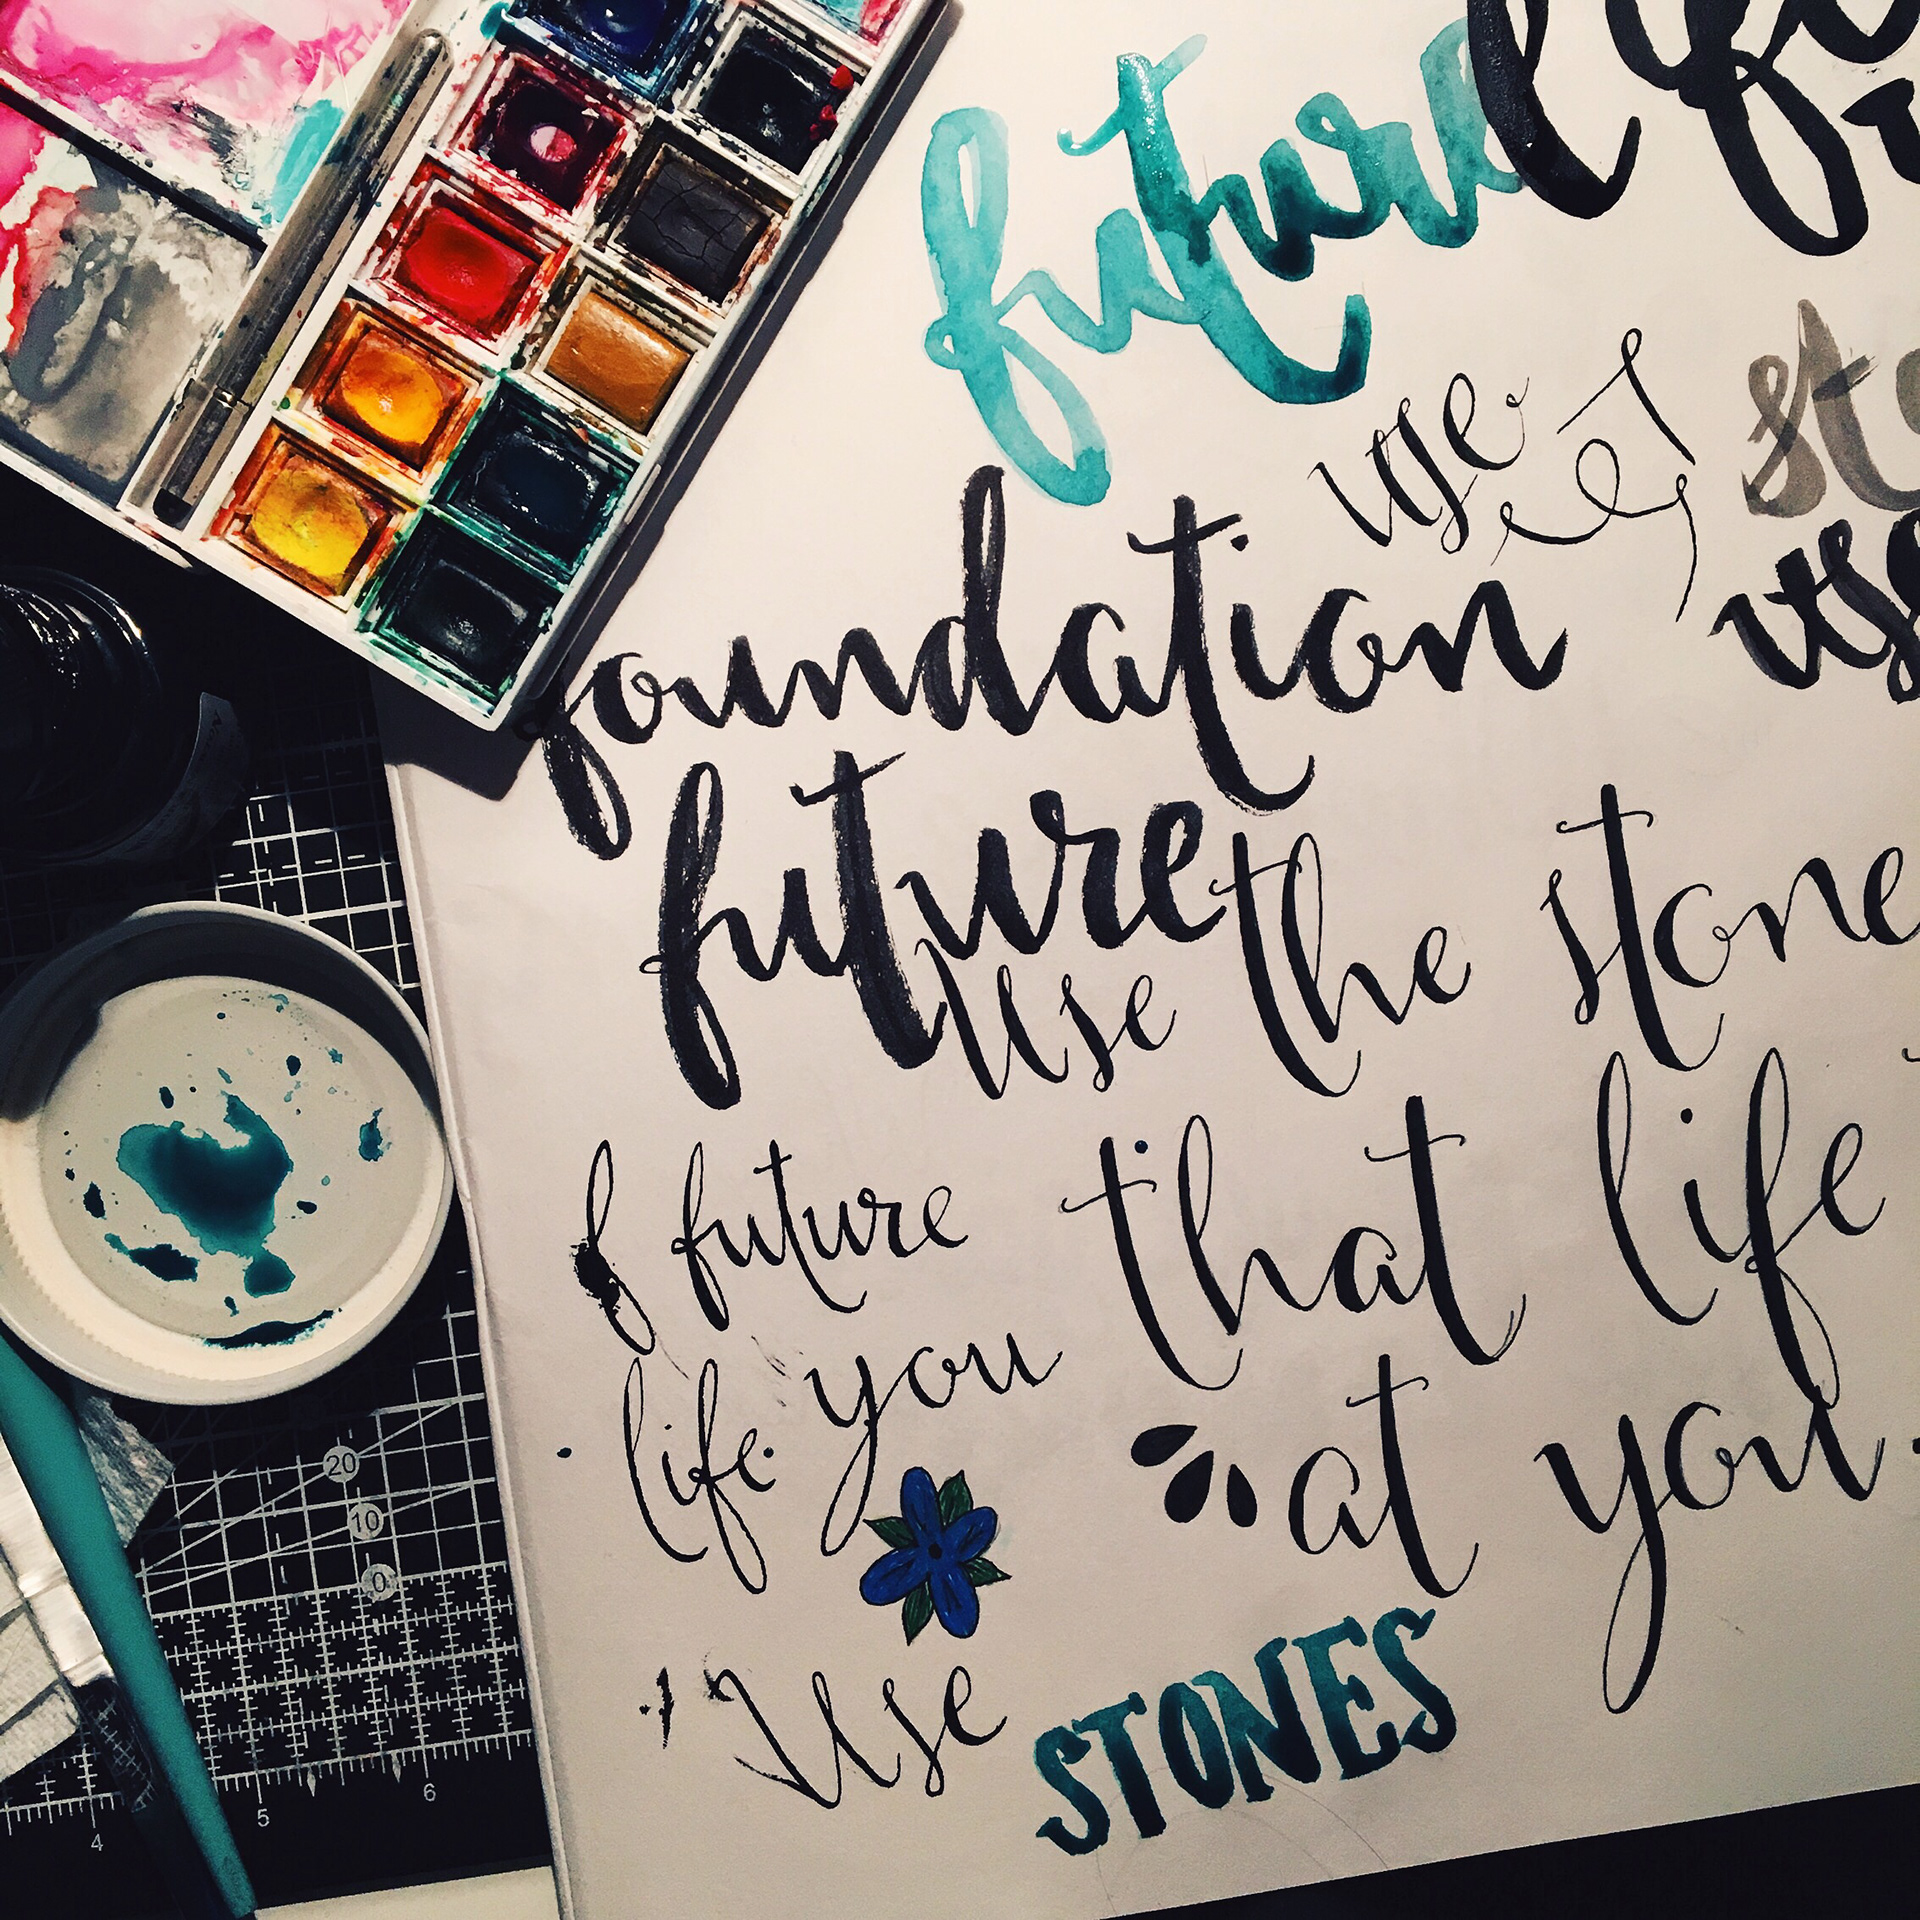 future life
use
foundation
future
use the stone
f future that life
life you at you.
Use STONES
20
10
0
4 5 6